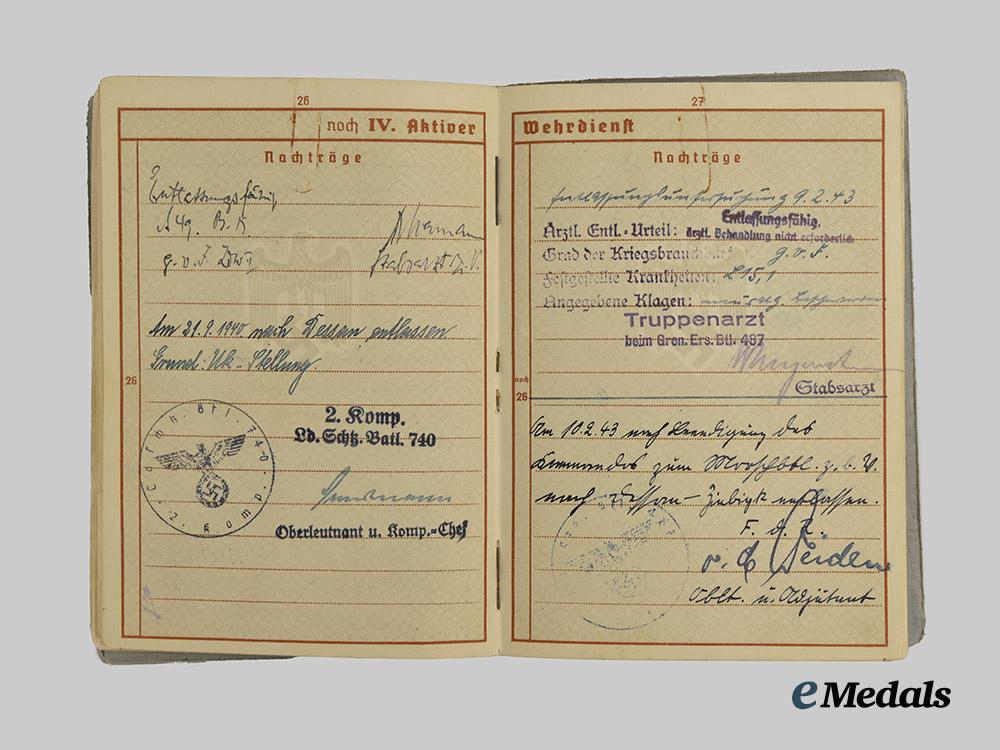 26
noch IV. Aktiver
Nachträge
Entlassungsfähig
A 49. B. 15
g.v.F.
Stabsarzt
Am 21.9.1940 nach Dessau entlassen
Grund: Uk-Stellung
26
2. Komp.
Ld. Schtz. Batl. 740
Oberleutnant u. Komp.-Chef
27
Wehrdienst
Nachträge
Entlassungsuntersuchung 9.2.43
Entlassungsfähig,
Ärztl. Entl.-Urteil: ärztl. Behandlung nicht erforderlich.
Grad der Kriegsbrauchbark. g.v.F.
Festgestellte Krankheiten: L15,1
Angegebene Klagen:
Truppenarzt
beim Gren. Ers. Btl. 487
Stabsarzt
noch
26
Am 10.2.43 nach Beendigung des
Kommandos zum Marschbtl. z.b.V.
nach Dessau-Ziebigk entlassen.
F.d.R.
Oblt. u. Adjutant
eMedals